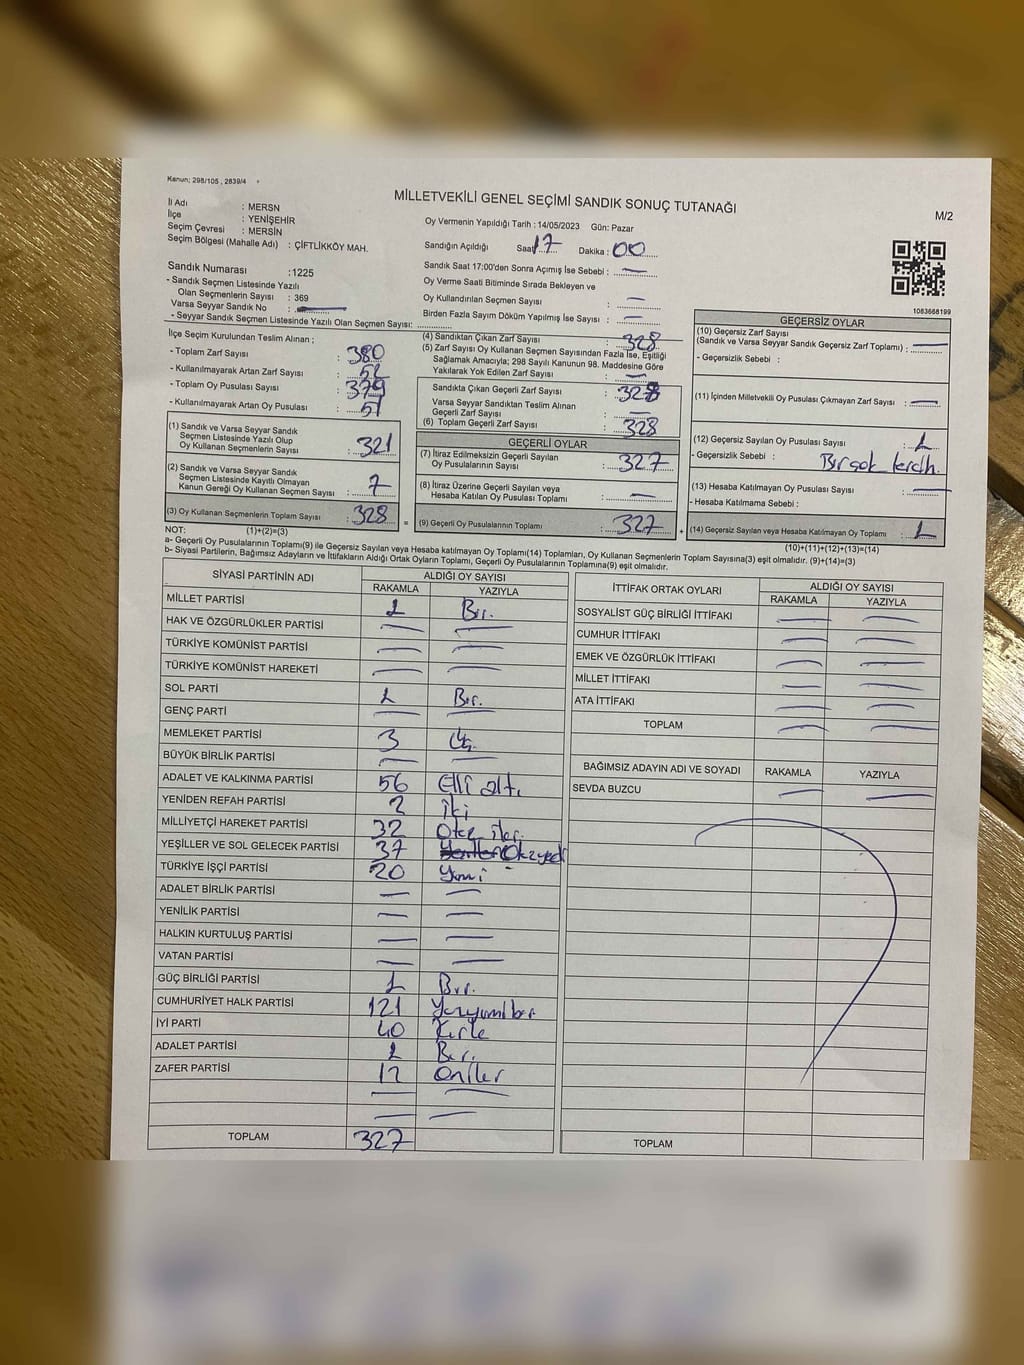 Kanun; 298/105 , 2839/4
MİLLETVEKİLİ GENEL SEÇİMİ SANDIK SONUÇ TUTANAĞI
M/2
İl Adı : MERSN
İlçe : YENİŞEHİR
Seçim Çevresi : MERSİN
Seçim Bölgesi (Mahalle Adı) : ÇİFTLİKKÖY MAH.
Oy Vermenin Yapıldığı Tarih : 14/05/2023 Gün: Pazar
Sandığın Açıldığı Saat 17 Dakika : 00
Sandık Saat 17:00'den Sonra Açımış İse Sebebi : —
Oy Verme Saati Bitiminde Sırada Bekleyen ve
Oy Kullandırılan Seçmen Sayısı : —
Birden Fazla Sayım Döküm Yapılmış İse Sayısı : —
Sandık Numarası :1225
- Sandık Seçmen Listesinde Yazılı
Olan Seçmenlerin Sayısı : 369
Varsa Seyyar Sandık No : —
- Seyyar Sandık Seçmen Listesinde Yazılı Olan Seçmen Sayısı:
1083668199
İlçe Seçim Kurulundan Teslim Alınan ;
- Toplam Zarf Sayısı : 380
- Kullanılmayarak Artan Zarf Sayısı : 52
- Toplam Oy Pusulası Sayısı : 379
- Kullanılmayarak Artan Oy Pusulası : 51
(1) Sandık ve Varsa Seyyar Sandık
Seçmen Listesinde Yazılı Olup
Oy Kullanan Seçmenlerin Sayısı : 321
(2) Sandık ve Varsa Seyyar Sandık
Seçmen Listesinde Kayıtlı Olmayan
Kanun Gereği Oy Kullanan Seçmen Sayısı : 7
(3) Oy Kullanan Seçmenlerin Toplam Sayısı : 328
(4) Sandıktan Çıkan Zarf Sayısı : 328
(5) Zarf Sayısı Oy Kullanan Seçmen Sayısından Fazla İse, Eşitliği
Sağlamak Amacıyla; 298 Sayılı Kanunun 98. Maddesine Göre
Yakılarak Yok Edilen Zarf Sayısı : —
Sandıkta Çıkan Geçerli Zarf Sayısı : 328
Varsa Seyyar Sandıktan Teslim Alınan
Geçerli Zarf Sayısı : —
(6) Toplam Geçerli Zarf Sayısı : 328
GEÇERLİ OYLAR
(7) İtiraz Edilmeksizin Geçerli Sayılan
Oy Pusulalarının Sayısı : 327
(8) İtiraz Üzerine Geçerli Sayılan veya
Hesaba Katılan Oy Pusulası Toplamı : —
= (9) Geçerli Oy Pusulalarının Toplamı : 327 +
GEÇERSİZ OYLAR
(10) Geçersiz Zarf Sayısı
(Sandık ve Varsa Seyyar Sandık Geçersiz Zarf Toplamı) : —
- Geçersizlik Sebebi :
(11) İçinden Milletvekili Oy Pusulası Çıkmayan Zarf Sayısı : —
(12) Geçersiz Sayılan Oy Pusulası Sayısı : 1
- Geçersizlik Sebebi :
(13) Hesaba Katılmayan Oy Pusulası Sayısı : —
- Hesaba Katılmama Sebebi :
(14) Geçersiz Sayılan veya Hesaba Katılmayan Oy Toplamı : 1
NOT: (1)+(2)=(3)
(10)+(11)+(12)+(13)=(14)
a- Geçerli Oy Pusulalarının Toplamı(9) ile Geçersiz Sayılan veya Hesaba katılmayan Oy Toplamı(14) Toplamları, Oy Kullanan Seçmenlerin Toplam Sayısına(3) eşit olmalıdır. (9)+(14)=(3)
b- Siyasi Partilerin, Bağımsız Adayların ve İttifakların Aldığı Ortak Oyların Toplamı, Geçerli Oy Pusulalarının Toplamına(9) eşit olmalıdır.
SİYASİ PARTİNİN ADI ALDIĞI OY SAYISI
RAKAMLA YAZIYLA
MİLLET PARTİSİ 1 Bir.
HAK VE ÖZGÜRLÜKLER PARTİSİ — —
TÜRKİYE KOMÜNİST PARTİSİ — —
TÜRKİYE KOMÜNİST HAREKETİ — —
SOL PARTİ 1 Bir.
GENÇ PARTİ — —
MEMLEKET PARTİSİ 3 Üç.
BÜYÜK BİRLİK PARTİSİ — —
ADALET VE KALKINMA PARTİSİ 56 Elli altı
YENİDEN REFAH PARTİSİ 2 İki
MİLLİYETÇİ HAREKET PARTİSİ 32
YEŞİLLER VE SOL GELECEK PARTİSİ 37
TÜRKİYE İŞÇİ PARTİSİ 20
ADALET BİRLİK PARTİSİ — —
YENİLİK PARTİSİ — —
HALKIN KURTULUŞ PARTİSİ — —
VATAN PARTİSİ — —
GÜÇ BİRLİĞİ PARTİSİ 1 Bir.
CUMHURİYET HALK PARTİSİ 121
İYİ PARTİ 40
ADALET PARTİSİ 1 Bir.
ZAFER PARTİSİ 12
— —
— —
TOPLAM 327
İTTİFAK ORTAK OYLARI ALDIĞI OY SAYISI
RAKAMLA YAZIYLA
SOSYALİST GÜÇ BİRLİĞİ İTTİFAKI — —
CUMHUR İTTİFAKI — —
EMEK VE ÖZGÜRLÜK İTTİFAKI — —
MİLLET İTTİFAKI — —
ATA İTTİFAKI — —
TOPLAM — —
BAĞIMSIZ ADAYIN ADI VE SOYADI RAKAMLA YAZIYLA
SEVDA BUZCU — —
TOPLAM